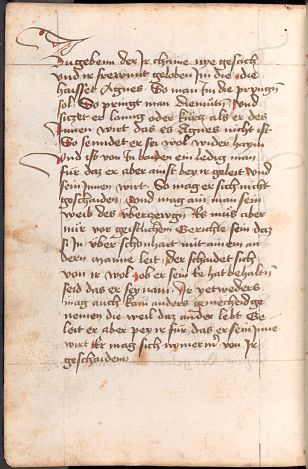 Zugebenn der Jr chainẽ nye gesach
vnd ir frewnnt geloben Jn die die
haisset Agnes So man Jm die pryngn
sol So pringt man Diemüttn vnd
sitzet er lanng oder kurtz als er des
Jnnen wirt das es Agnes nicht ist
So senndet er sei wol wider haym
vnd ist von Jn baiden ein ledig man
für daz er aber aüst bey ir geleit vnd
sein Jnnen wirt So mag er sich nicht
geschaiden vnd mag ain man sein
weib des vberzewgn Es müs aber
nür vor geistlichen Gerichte sein daz
si Jn vber Schonhait mit ainem an
dern manne leit der schaidet sich
von ir wol ob er sein ee hat behaltn
seid das er sey nam Jr yetweders
mag auch kain anders gemechedge
nemen die weil daz ander lebt Ge
leit er aber pey ir für das er sein Jnne
wirt Er mag sich nymer mer von Jr
geschaiden